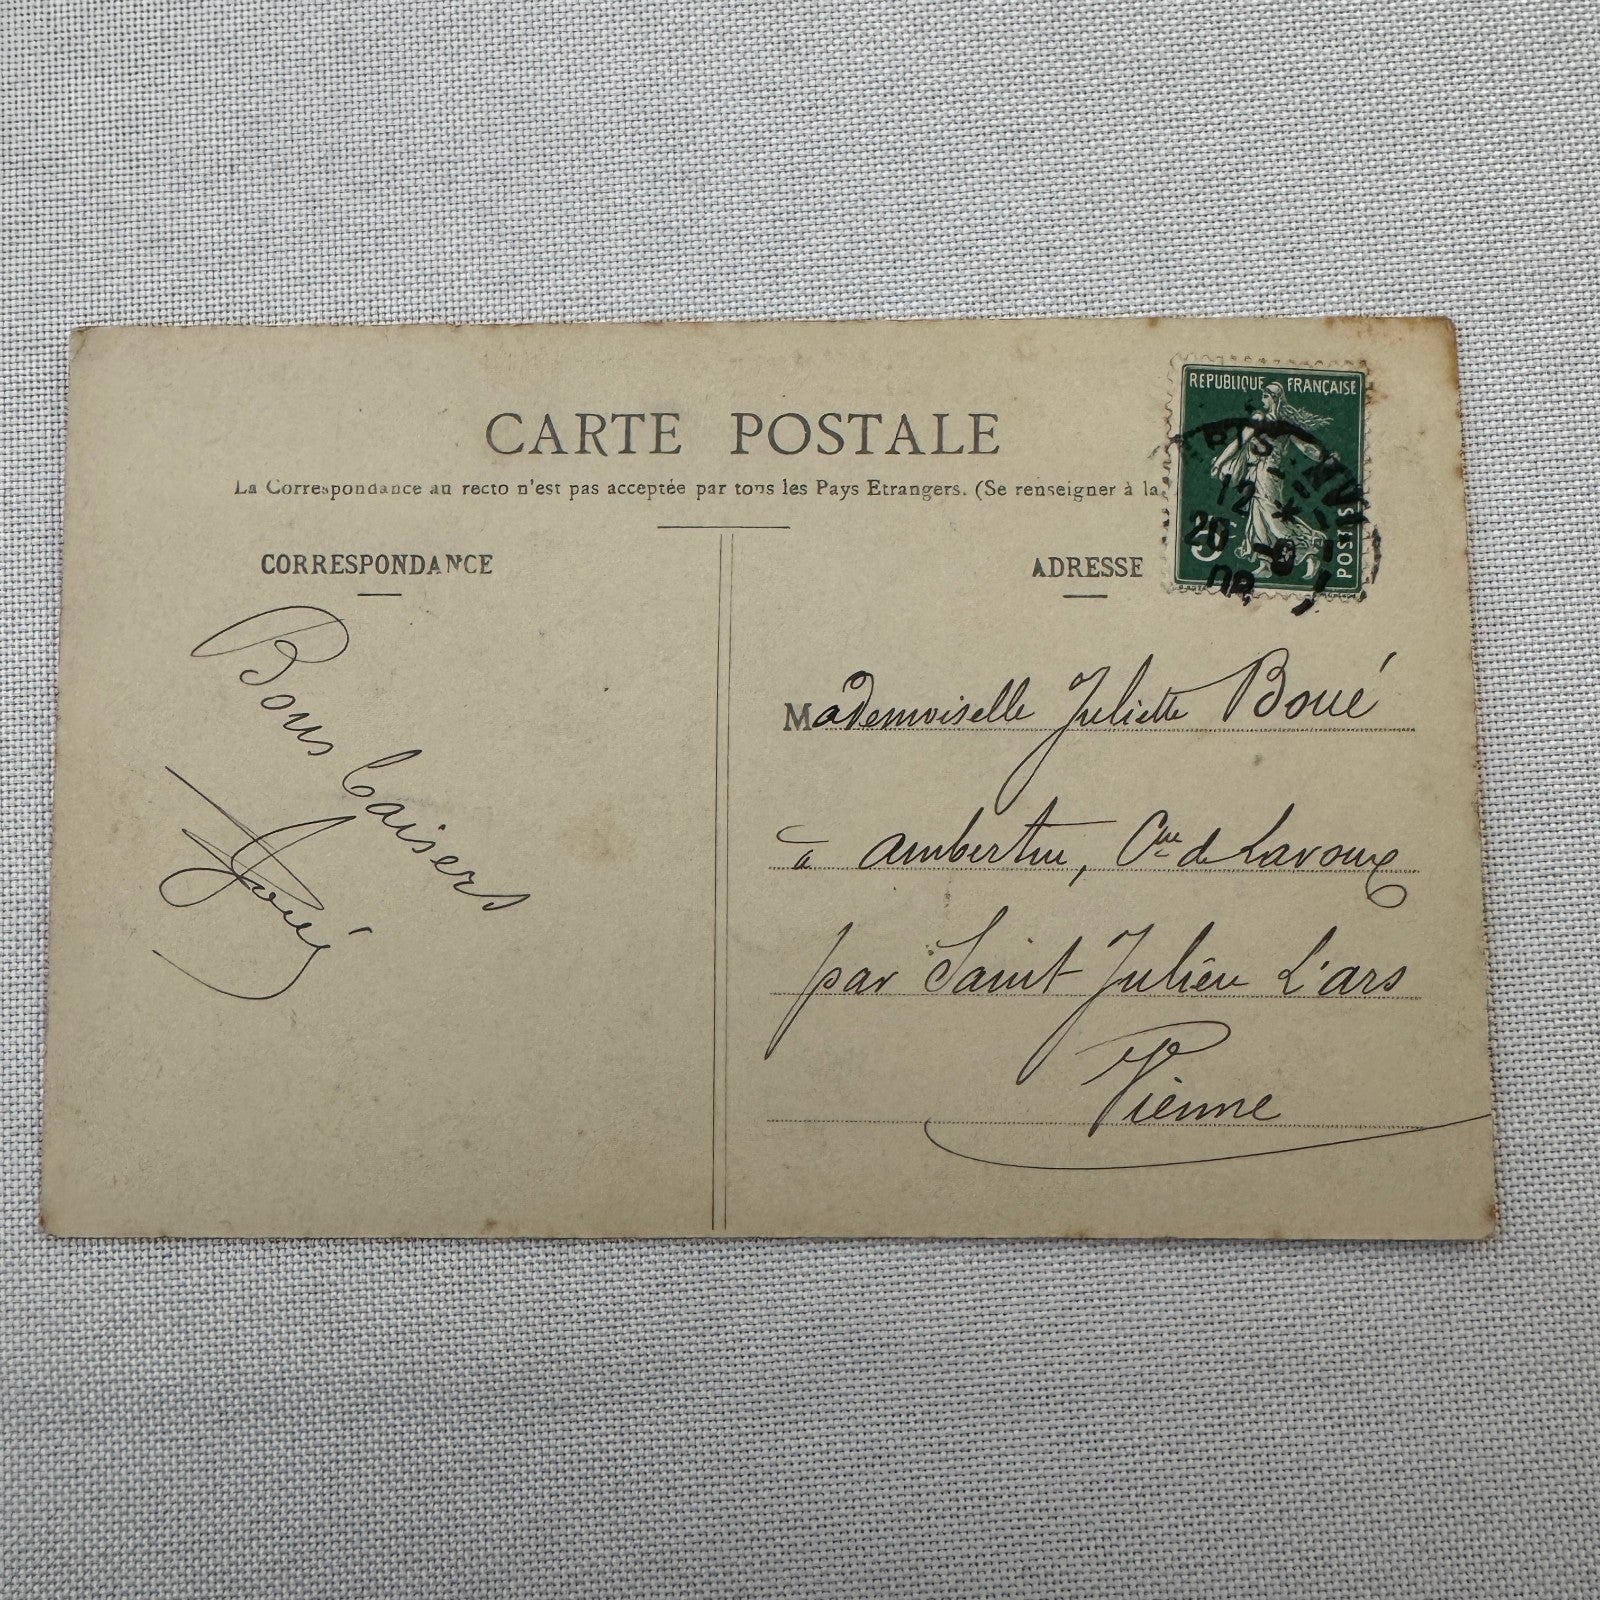 CARTE POSTALE
La Correspondance au recto n'est pas acceptée par tous les Pays Etrangers. (Se renseigner à la
CORRESPONDANCE
ADRESSE
REPUBLIQUE FRANÇAISE
5c
POSTES
12
20
Bons baisers
Mademoiselle Juliette Boué
à
Cne de Lavoux
par Saint Julien L'ars
Vienne